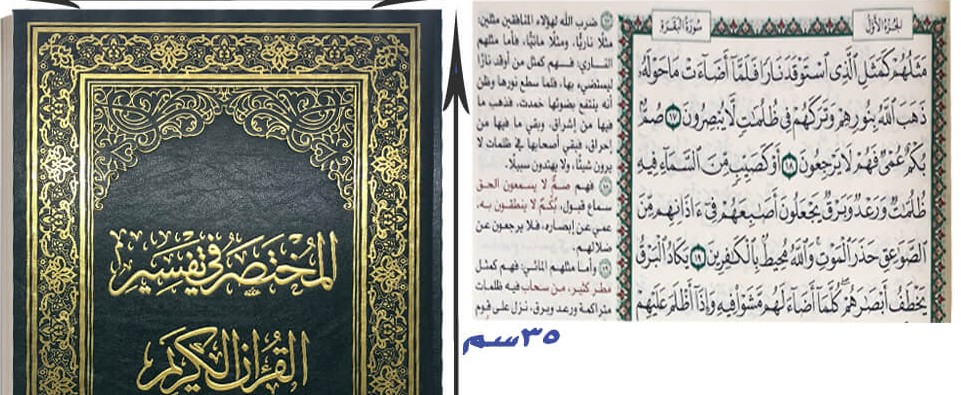 المختصر في تفسير
القرآن الكريم
٣٥سم
الجزء الأول
سورة البقرة
مَثَلُهُمْ كَمَثَلِ ٱلَّذِى ٱسْتَوْقَدَ نَارًا فَلَمَّآ أَضَآءَتْ مَا حَوْلَهُۥ
ذَهَبَ ٱللَّهُ بِنُورِهِمْ وَتَرَكَهُمْ فِى ظُلُمَٰتٍ لَّا يُبْصِرُونَ ١٧ صُمٌّۢ
بُكْمٌ عُمْىٌ فَهُمْ لَا يَرْجِعُونَ ١٨ أَوْ كَصَيِّبٍ مِّنَ ٱلسَّمَآءِ فِيهِ
ظُلُمَٰتٌ وَرَعْدٌ وَبَرْقٌ يَجْعَلُونَ أَصَٰبِعَهُمْ فِىٓ ءَاذَانِهِم مِّنَ
ٱلصَّوَٰعِقِ حَذَرَ ٱلْمَوْتِ وَٱللَّهُ مُحِيطٌۢ بِٱلْكَٰفِرِينَ ١٩ يَكَادُ ٱلْبَرْقُ
يَخْطَفُ أَبْصَٰرَهُمْ كُلَّمَآ أَضَآءَ لَهُم مَّشَوْا۟ فِيهِ وَإِذَآ أَظْلَمَ عَلَيْهِمْ
١٧ ضرب الله لهؤلاء المنافقين مثلين:
مثلًا ناريًّا، ومثلًا مائيًّا، فأما مثلهم
الناري: فهم كمثل من أوقد نارًا
ليستضيء بها، فلما سطع نورها وظن
أنه ينتفع بضوئها خمدت، فذهب ما
فيها من إشراق، وبقي ما فيها من
إحراق، فبقي أصحابها في ظلمات لا
يرون شيئًا، ولا يهتدون سبيلًا.
١٨ فهم صمٌّ لا يسمعون الحق
سماع قبول، بُكْمٌ لا ينطقون به،
عمي عن إبصاره، فلا يرجعون عن
ضلالهم.
١٩ وأما مثلهم المائي: فهم كمثل
مطر كثير، من سحاب فيه ظلمات
متراكمة ورعد وبرق، نزل على قوم